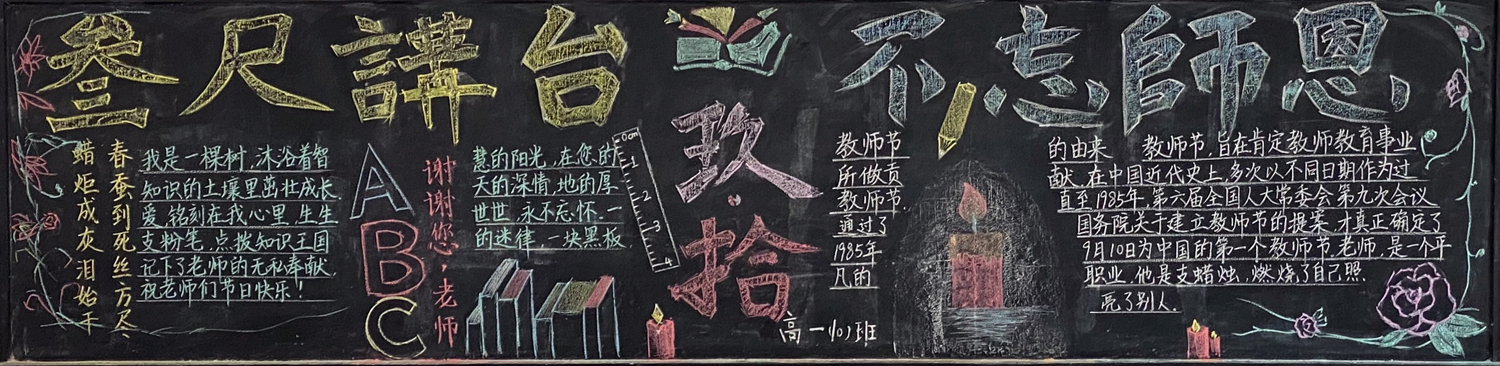 叁尺講台
不忘師恩
玖·拾
春蚕到死丝方尽、
蜡炬成灰泪始干
我是一棵树,沐浴着智慧的阳光,在您的
知识的土壤里茁壮成长.天的深情,地的厚
爱,铭刻在我心里,生生世世,永不忘怀.一
支粉笔,点拨知识王国的迷律,一块黑板
记下了老师的无私奉献.
祝老师们节日快乐!
A
B
C
谢谢您,老师
0cm
1
2
3
4
教师节的由来 教师节,旨在肯定教师教育事业
所做贡献.在中国近代史上,多次以不同日期作为过
教师节.直至1985年,第六届全国人大常委会第九次会议
通过了国务院关于建立教师节的提案,才真正确定了
1985年9月10日为中国的第一个教师节.老师,是一个平
凡的职业,他是支蜡烛,燃烧了自己照
亮了别人.
高一(10)班